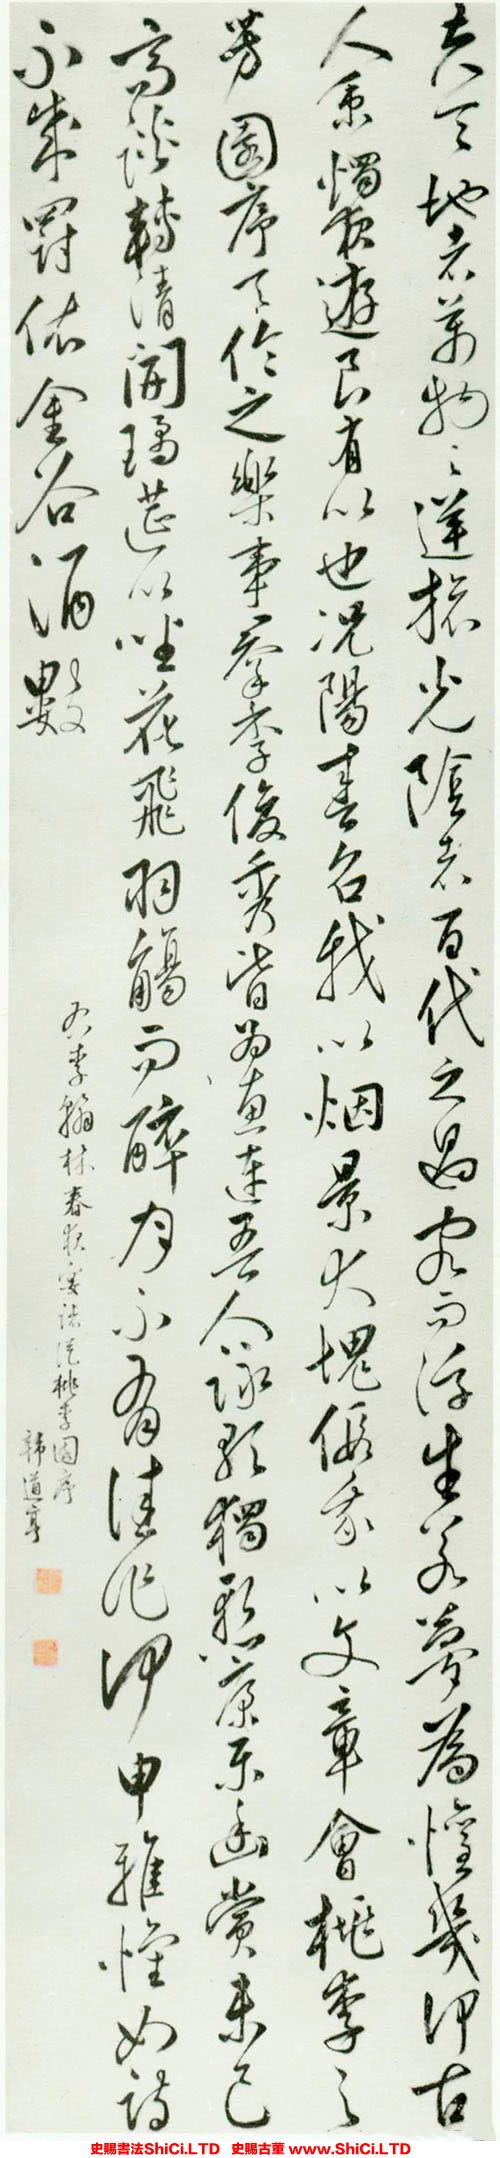 夫天地者萬物之逆旅光陰者百代之過客而浮生若夢為懽幾何古
人秉燭夜遊良有以也況陽春召我以烟景大塊假我以文章會桃李之
芳園序天倫之樂事羣季俊秀皆為惠連吾人詠歌獨慙康樂幽賞未已
高談轉清開瓊筵以坐花飛羽觴而醉月不有佳作何申雅懷如詩
不成罰依金谷酒數
右李翰林春夜宴諸從桃李園序
韓道亨
史賜書法ShiCi.LTD 史賜古董 www.ShiCi.LTD